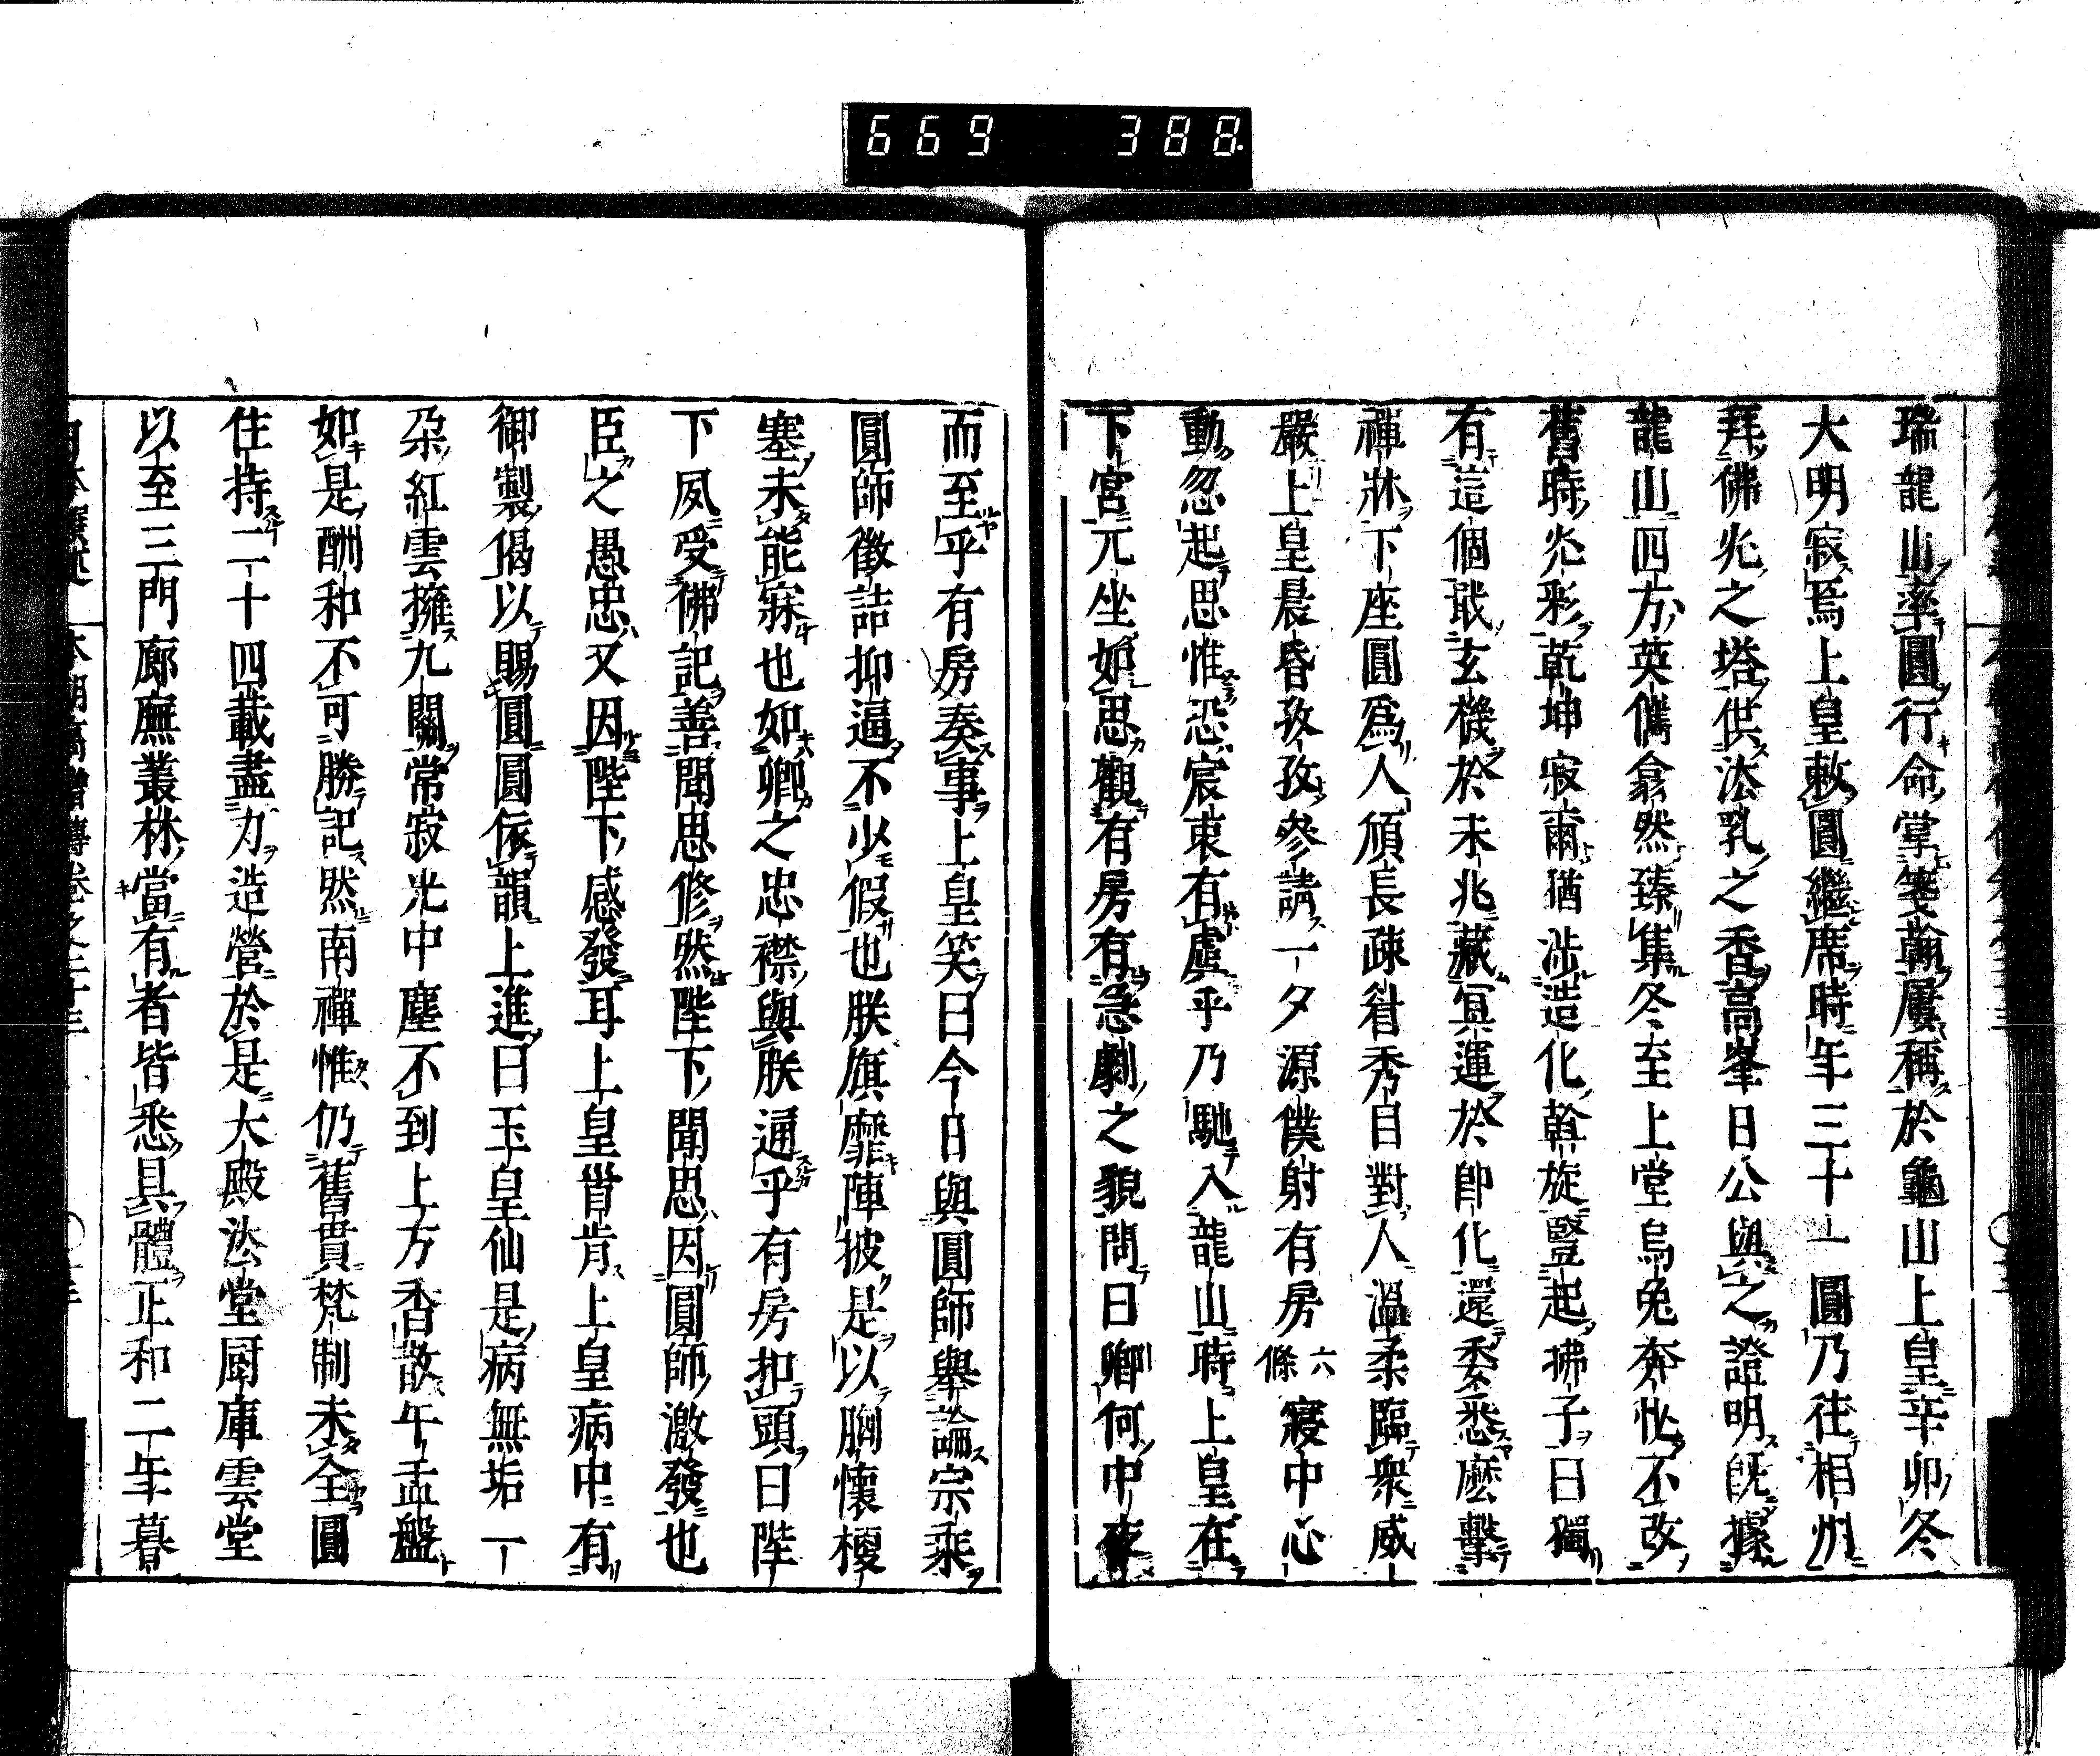 669 388
瑞龍山率圓行命掌箋翰屢稱於龜山上皇辛卯冬
大明寂焉上皇敕圓繼席時年三十一圓乃徃相州
拜佛光之塔供法乳之香高峯日公與之證明既據
龍山四方英儁翕然臻集冬至上堂烏兔奔忙不改
舊時光彩乾坤寂爾猶涉造化斡旋豎起拂子曰獨
有這個戢玄機於未兆藏冥運於即化還委悉麽擊
禪牀下座圓爲人頎長疎眉秀目對人溫柔臨衆威
嚴上皇晨昏孜孜參請一夕源僕射有房六條寢中心
動忽起思惟恐宸衷有虞乎乃馳入龍山時上皇在
下宮兀坐如思觀有房有急劇之貌問曰卿何中夜
而至乎有房奏事上皇笑曰今日與圓師擧論宗乘
圓師徵詰抑逼不少假也朕旗靡陣披是以胸懷梗
塞未能寐也如卿之忠襟與朕通乎有房扣頭曰陛
下夙受佛記善聞思修然陛下聞思因圓師激發也
臣之愚忠又因陛下感發耳上皇肯肯上皇病中有
御製偈以賜圓圓依韻上進曰玉皇仙是病無垢一
朶紅雲擁九關常寂光中塵不到上方香散午盂盤
如是酬和不可勝記然南禪惟仍舊貫梵制未全圓
住持二十四載盡力造營於是大殿法堂厨庫雲堂
以至三門廊廡叢林當有者皆悉具體正和二年暮